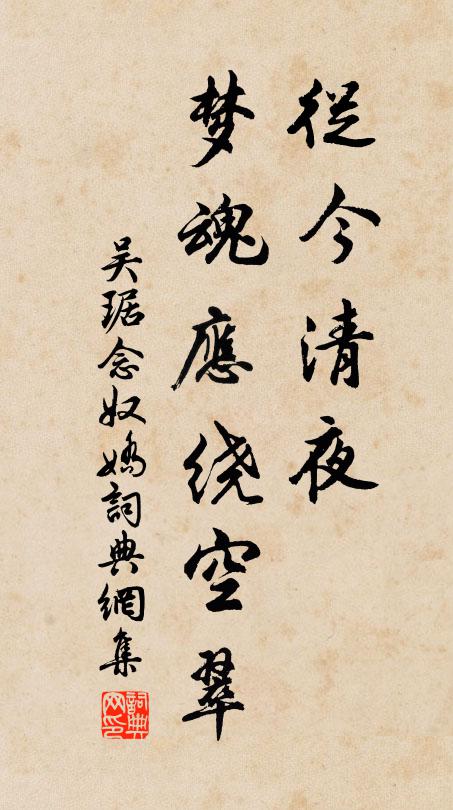 從今清夜
梦魂應绕空翠
吴琚念奴嬌詞典網集
詞典网印